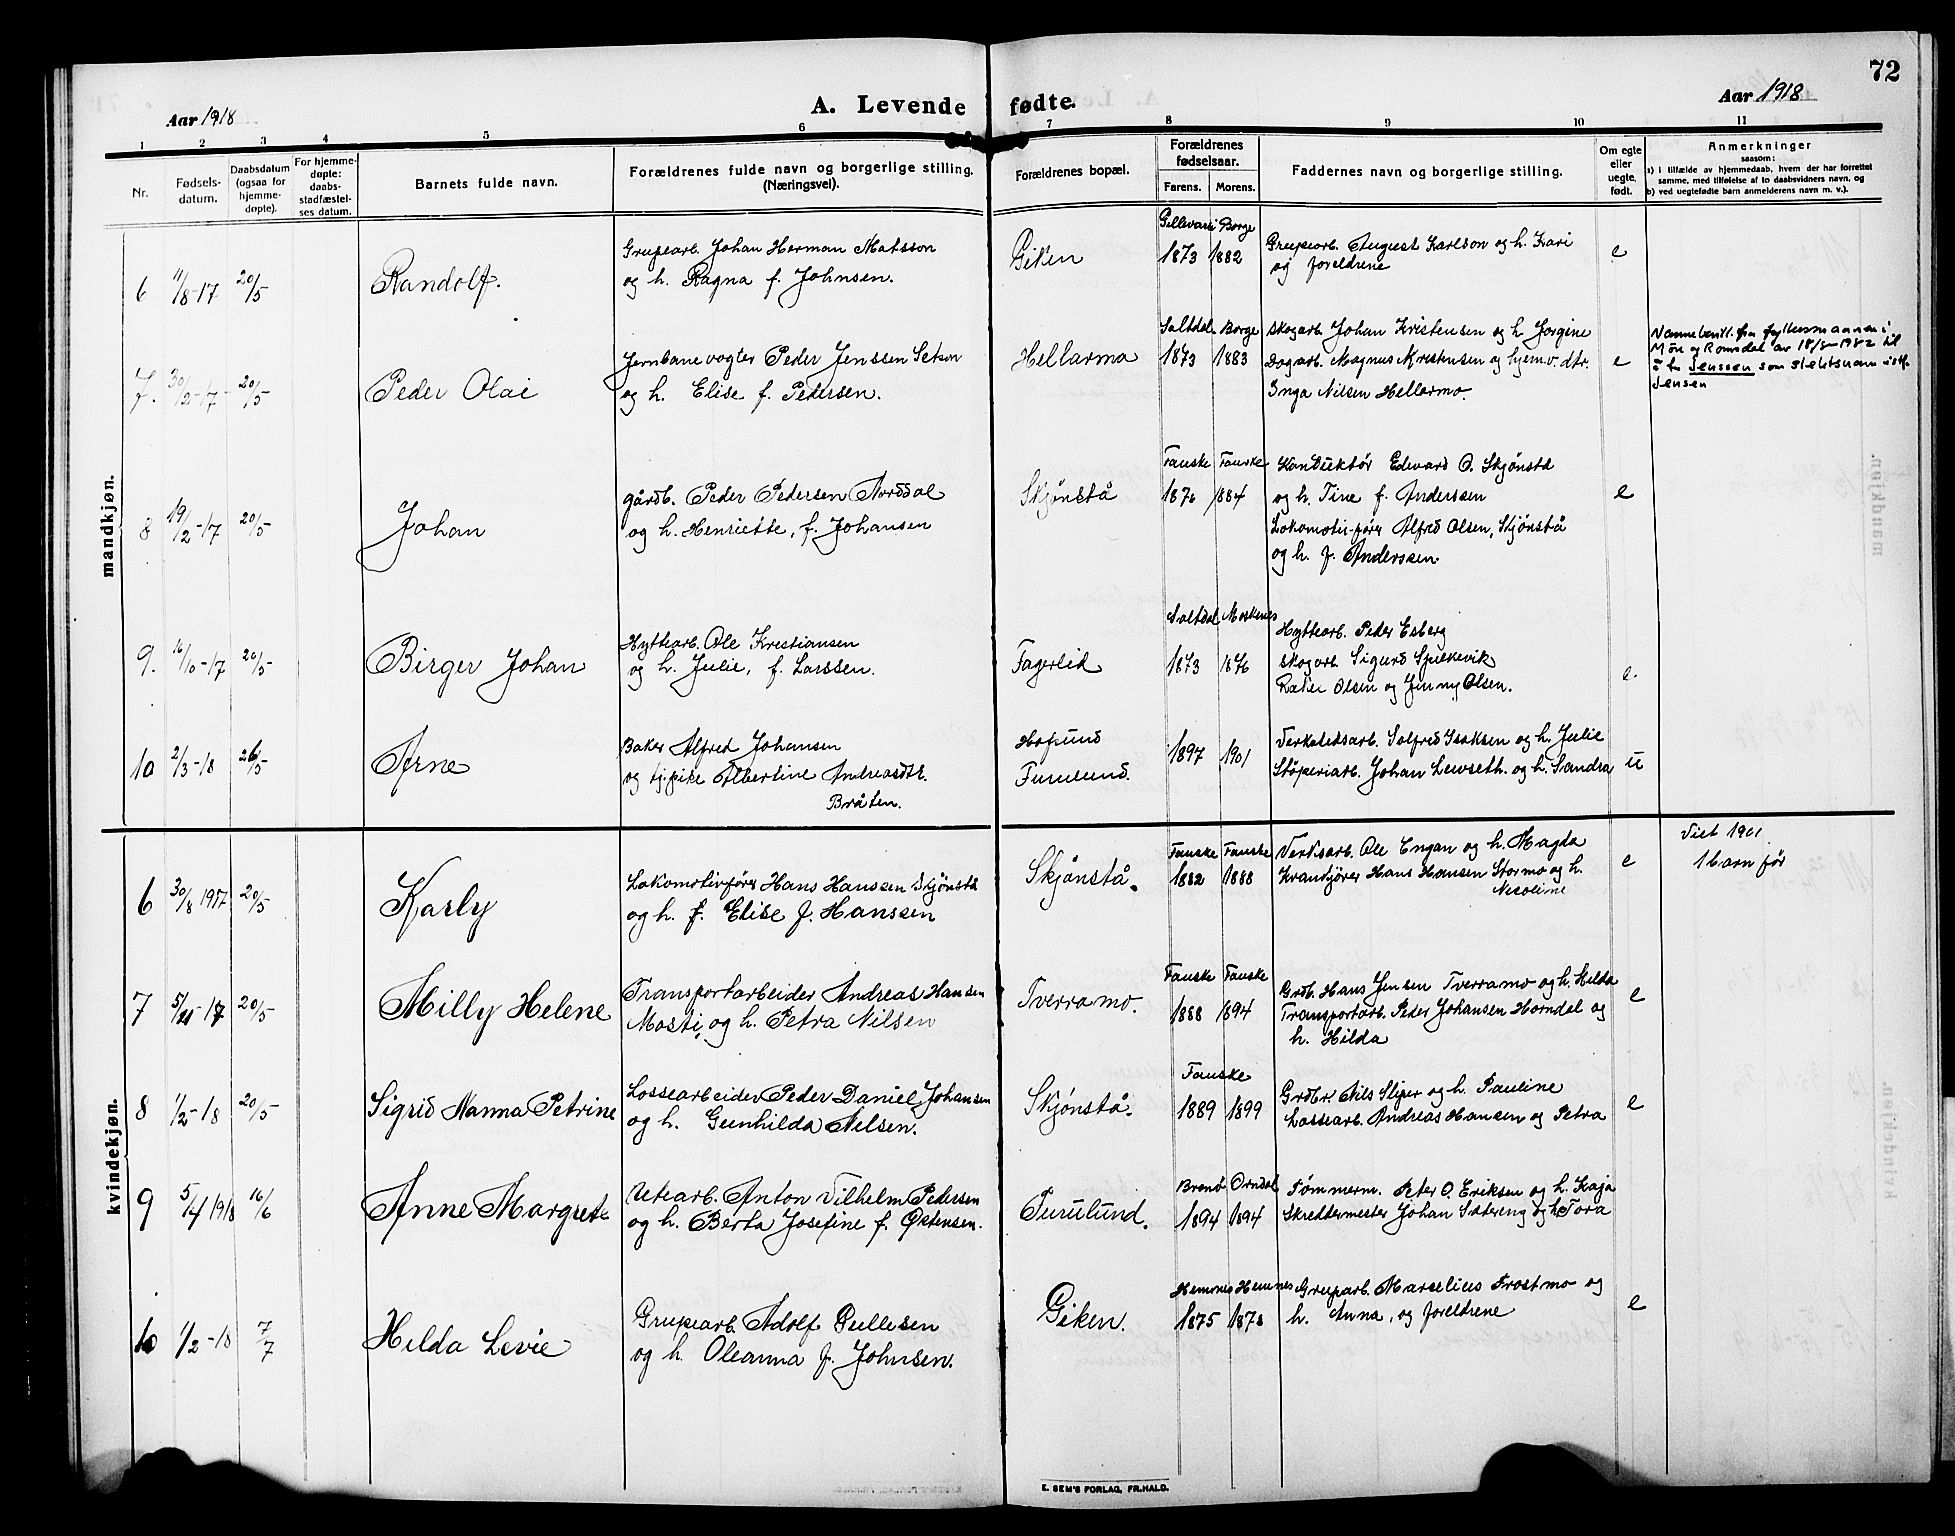 72
Aar 1918
A. Levende fødte.
Aar 1918
1 2 3 4 5 6 7 8 9 10 11
Nr.
Fødsels-
datum.
Daabsdatum
(ogsaa for
hjemme-
døpte).
For hjemme-
døpte:
daabs-
stadfæstel-
ses datum.
Barnets fulde navn.
Forældrenes fulde navn og borgerlige stilling.
(Næringsvei).
Forældrenes bopæl.
Forældrenes
fødselsaar.
Farens. Morens.
Faddernes navn og borgerlige stilling.
Om egte
eller
uegte.
født.
Anmerkninger
saasom:
a) i tilfælde av hjemmedaab, hvem der har forrettet
samme, med tilføielse af to daabsvidners navn, og
b) ved uegtefødte barn anmelderens navn m. v.).
mandkjøn.
6 11/8-17 20/5
Randolf.
Grupearb. Johan Herman Matsson
og h. Ragna f. Johnsen.
Giken
Gellevare Borge
1873 1882
Grupearb. August Karlson og h. Kari
og foreldrene
e
7. 30/12-17 20/5
Peder Olai
Jernbanevogter Peder Jenssen Setson
og h. Elise f. Pedersen.
Hellarmo
Saltdal Borge
1873 1883
Skogarb. Johan Kristensen og h. Jorgine
Dagarb. Magnus Kristensen og hjem.v. dtr.
Inga Nilsen Hellarmo.
e
Navnebevill. fra fylkesmannen i
Møre og Romsdal av 18/5-1982 til
å ta Jenssen som slektsnavn istf.
Jensen
8 19/12-17 20/5
Johan
Gårdb. Peder Pedersen Avrddal
og h. Henriette, f. Johansen
Skjønstå
Fauske Fauske
1876 1884
Konduktør Edvard O. Skjønstå
og h. Tine f. Anderssen
Lokomotivfører Alfred Olsen, Skjønstå
og h. f. Anderssen.
e
9. 16/10-17 20/5
Birger Johan
Hyttearb. Ole Kristiansen
og h. Julie, f. Larssen.
Fagerlid
Saltdal Moskenes
1873 1876
Hyttearb. Peder Esberg
Skogarb. Sigurd Spilkevik
Olsen og Jenny Olsen.
e.
10 2/3-18 26/5
Arne
Baker Alfred Johansen
og pike Albertine Andreasdtr.
Bråten.
Furulund.
1897 1901
Verkstedsarb. Solfred Isaksen og h. Julie
Støperiarb. Johan Lewseth. og h. Sandra
u
kvindekjøn.
6 30/8 1917 20/5
Karly
Lokomotivfører Hans Hanssen Skjønstå
og h. f. Elise f. Hanssen
Skjønstå.
Fauske Fauske
1882 1888
Verksarb. Ole Engan og h. Magda
Krankjører Hans Hansen Stormo og h.
Nicoline
e
Viet 1901
1 barn før
7 5/11-17 20/5
Milly Helene
Transportarbeider Andreas Hansen
Mosti, og h. Petra Nilsen
Tverramo.
Fauske Fauske
1888 1894
Grdb. Hans Jensen Tverramo og h. Hilda
Transportarb. Peder Johansen Horndal og
h. Hilda
e
8 1/2-18 20/5
Sigrid Nanna Petrine
Lossearbeider Peder Daniel Johansen
og h. Gunhilda Nilsen.
Skjønstå.
Fauske
1889 1899
Grdbr. Nils Sliper og h. Pauline
Lossearb. Andreas Hansen og Petra
e
9 5/4 1918 16/6
Anne Margrete
Utearb. Anton Vilhelm Pedersen
og h. Berta Josefine f. Østensen.
Furulund.
Brønø
1894 1894
Tømmerm. Peter O. Eriksen og h. Kaja
Skreddermester Johan Sætereng og h. Tora
10 1/2-18 7/7
Hilda Levie
Grupearb. Adolf Pellesen
og h. Oleanna f. Johnsen.
Giken.
Hemnes Hemnes
1875 1878
Gruparb. Marselius Frostmo og
h. Anna, og foreldrene
e
E. SEM'S FORLAG, FR.HALD.